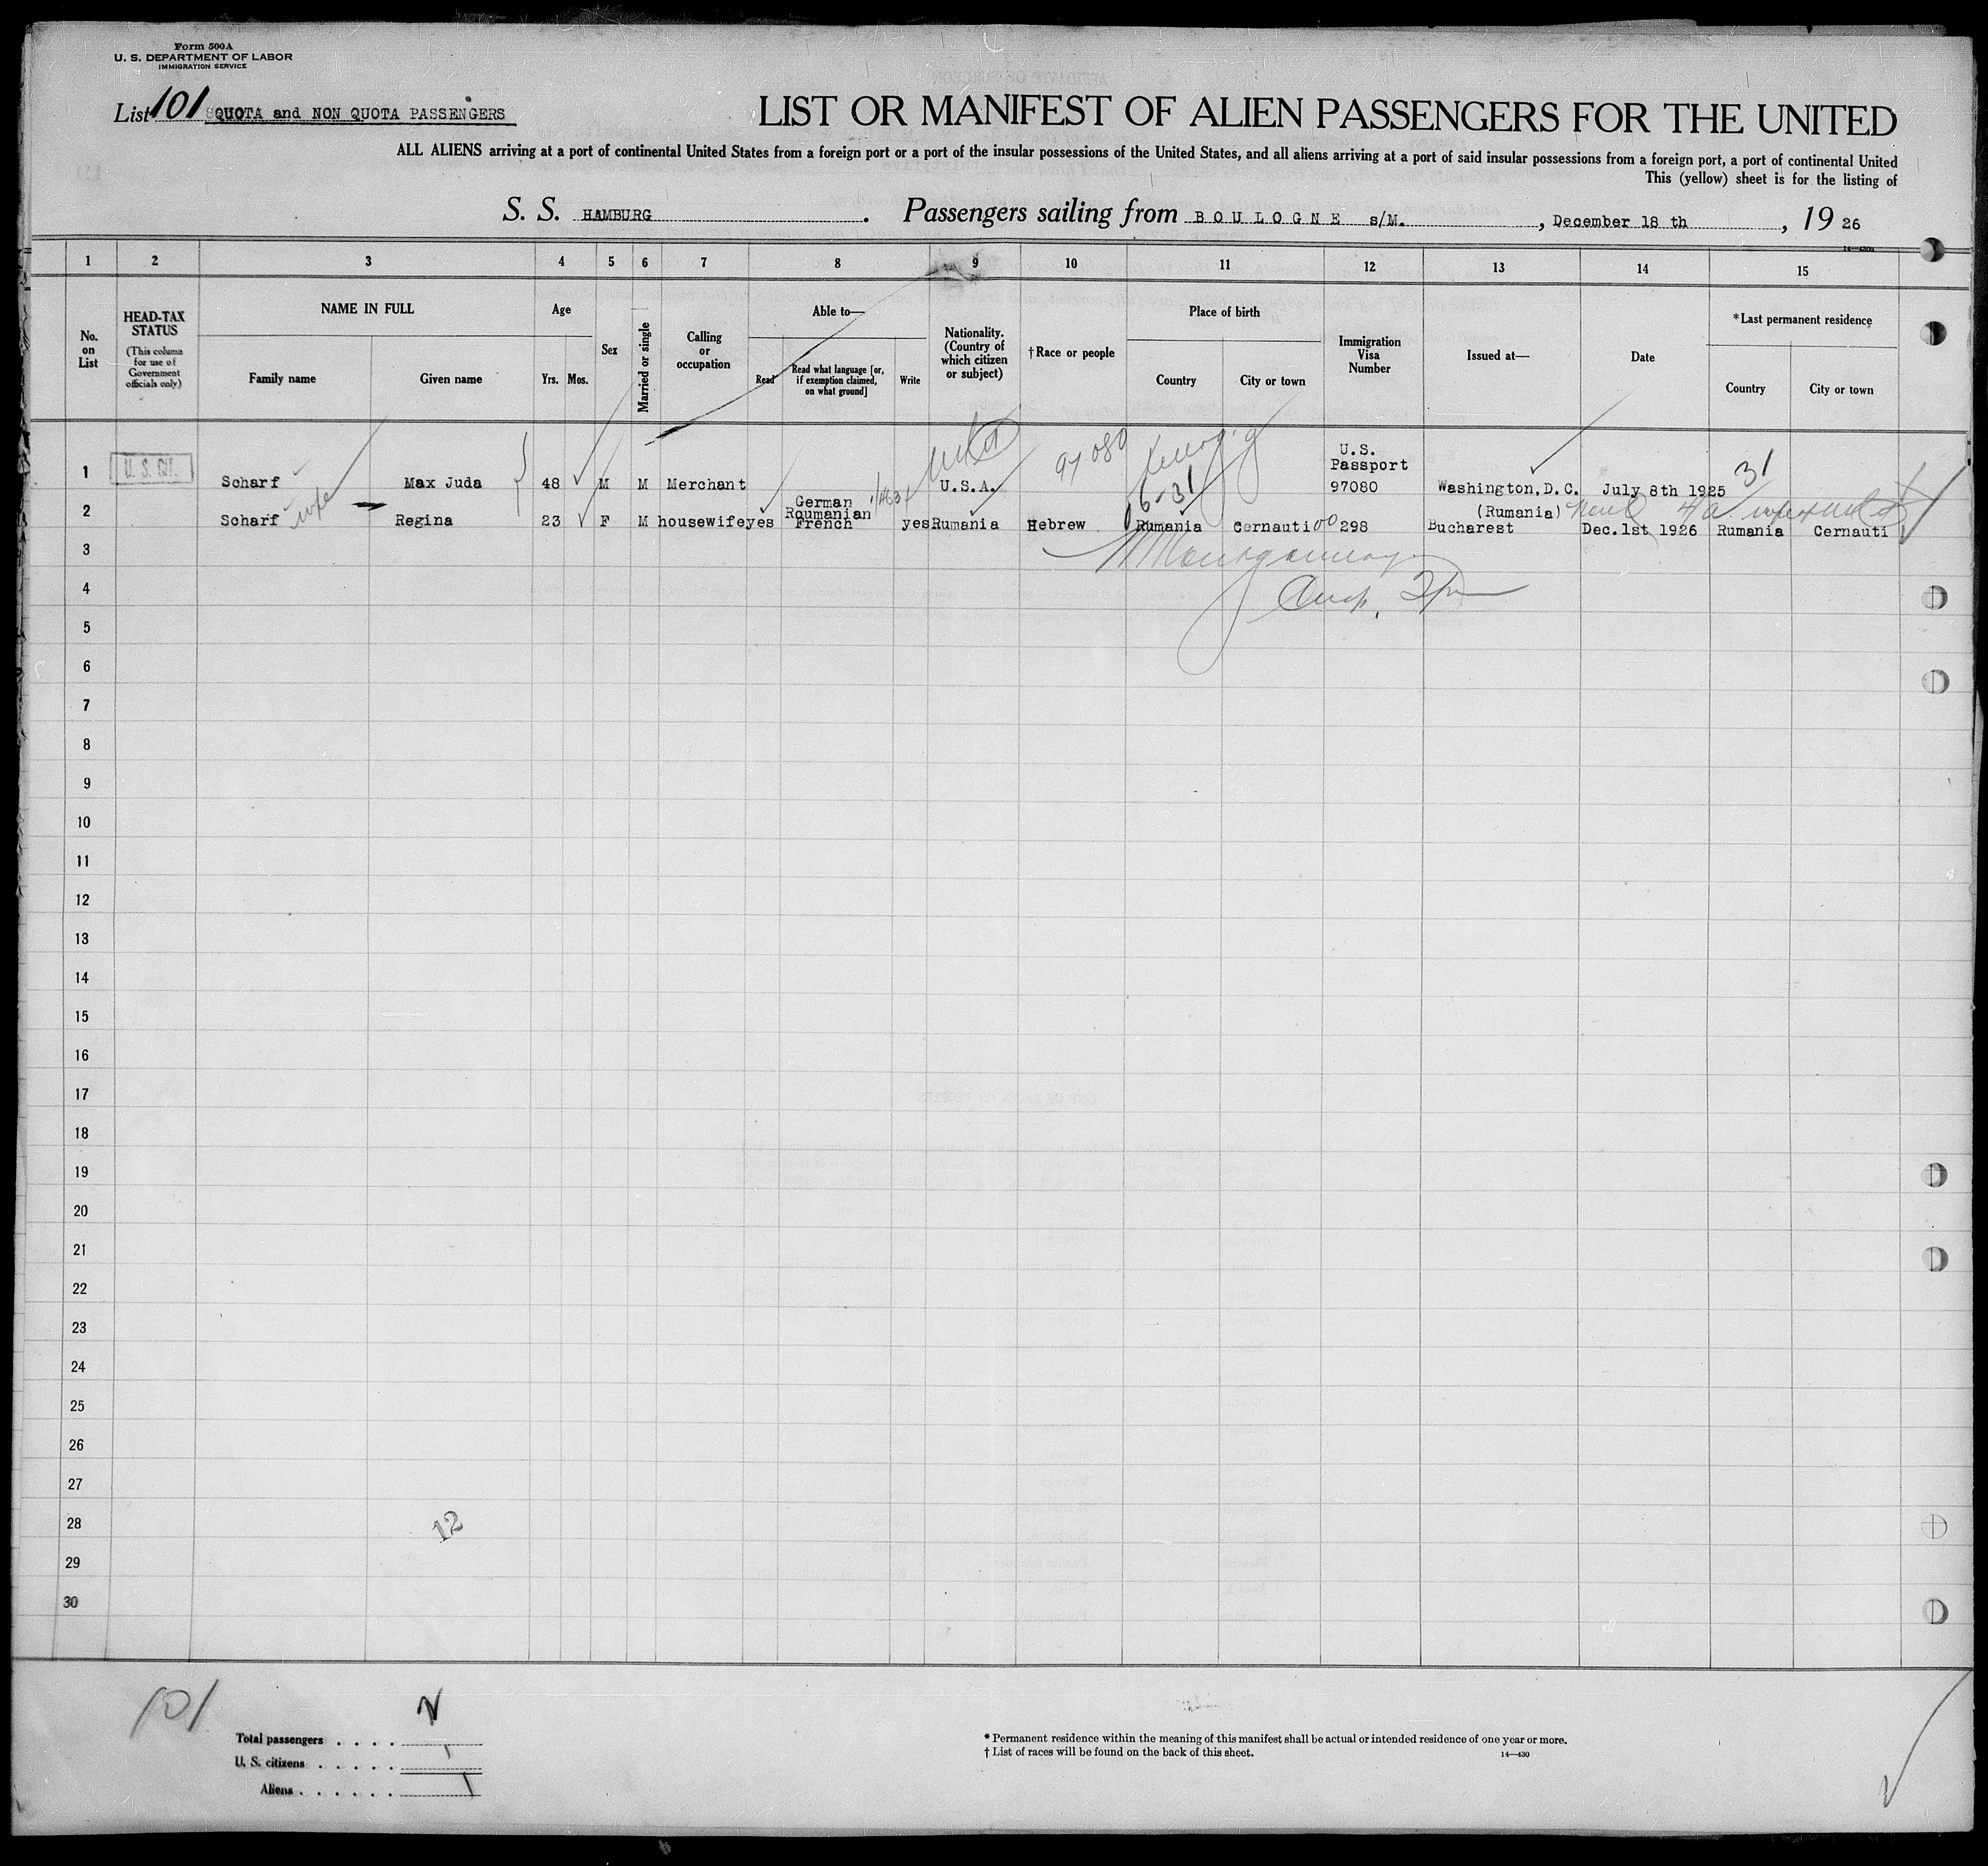 Form 500A
U. S. DEPARTMENT OF LABOR
IMMIGRATION SERVICE
List 101 QUOTA and NON QUOTA PASSENGERS
LIST OR MANIFEST OF ALIEN PASSENGERS FOR THE UNITED
ALL ALIENS arriving at a port of continental United States from a foreign port or a port of the insular possessions of the United States, and all aliens arriving at a port of said insular possessions from a foreign port, a port of continental United
This (yellow) sheet is for the listing of
S. S. HAMBURG. Passengers sailing from BOULOGNE s/M., December 18 th, 19 26
1 2 3 4 5 6 7 8 9 10 11 12 13 14 15
No. on List
HEAD-TAX STATUS
(This column for use of Government officials only)
NAME IN FULL
Family name
Given name
Age
Yrs. Mos.
Sex
Married or single
Calling or occupation
Able to—
Read
Read what language [or, if exemption claimed, on what ground]
Write
Nationality. (Country of which citizen or subject)
†Race or people
Place of birth
Country
City or town
Immigration Visa Number
Issued at—
Date
*Last permanent residence
Country
City or town
97080
31
U.S.
Passport
1 U. S. CIT. Scharf Max Juda 48 M M Merchant U.S.A. 97080 Washington, D.C. July 8th 1925
6-31
German
Roumanian
(Rumania)
2 Scharf wife Regina 23 F M housewife yes French yes Rumania Hebrew Rumania Cernauti 298 Bucharest Dec.1st 1926 Rumania Cernauti
3 Montgomery
4
5
6
7
8
9
10
11
12
13
14
15
16
17
18
19
20
21
22
23
24
25
26
27
28 12
29
30
101
Total passengers . . . .
U. S. citizens . . . . . 1
Aliens . . . . . . 1
* Permanent residence within the meaning of this manifest shall be actual or intended residence of one year or more.
† List of races will be found on the back of this sheet. 14—430